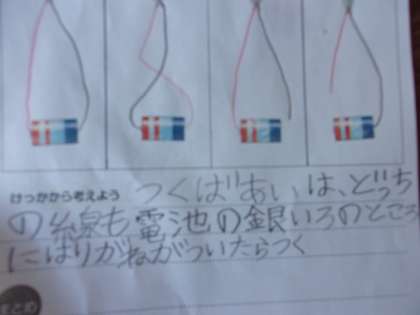 けっかから考えよう つくばあいは、どっち
の線も電池の銀いろのところ
にはりがねがついたらつく
まとめ